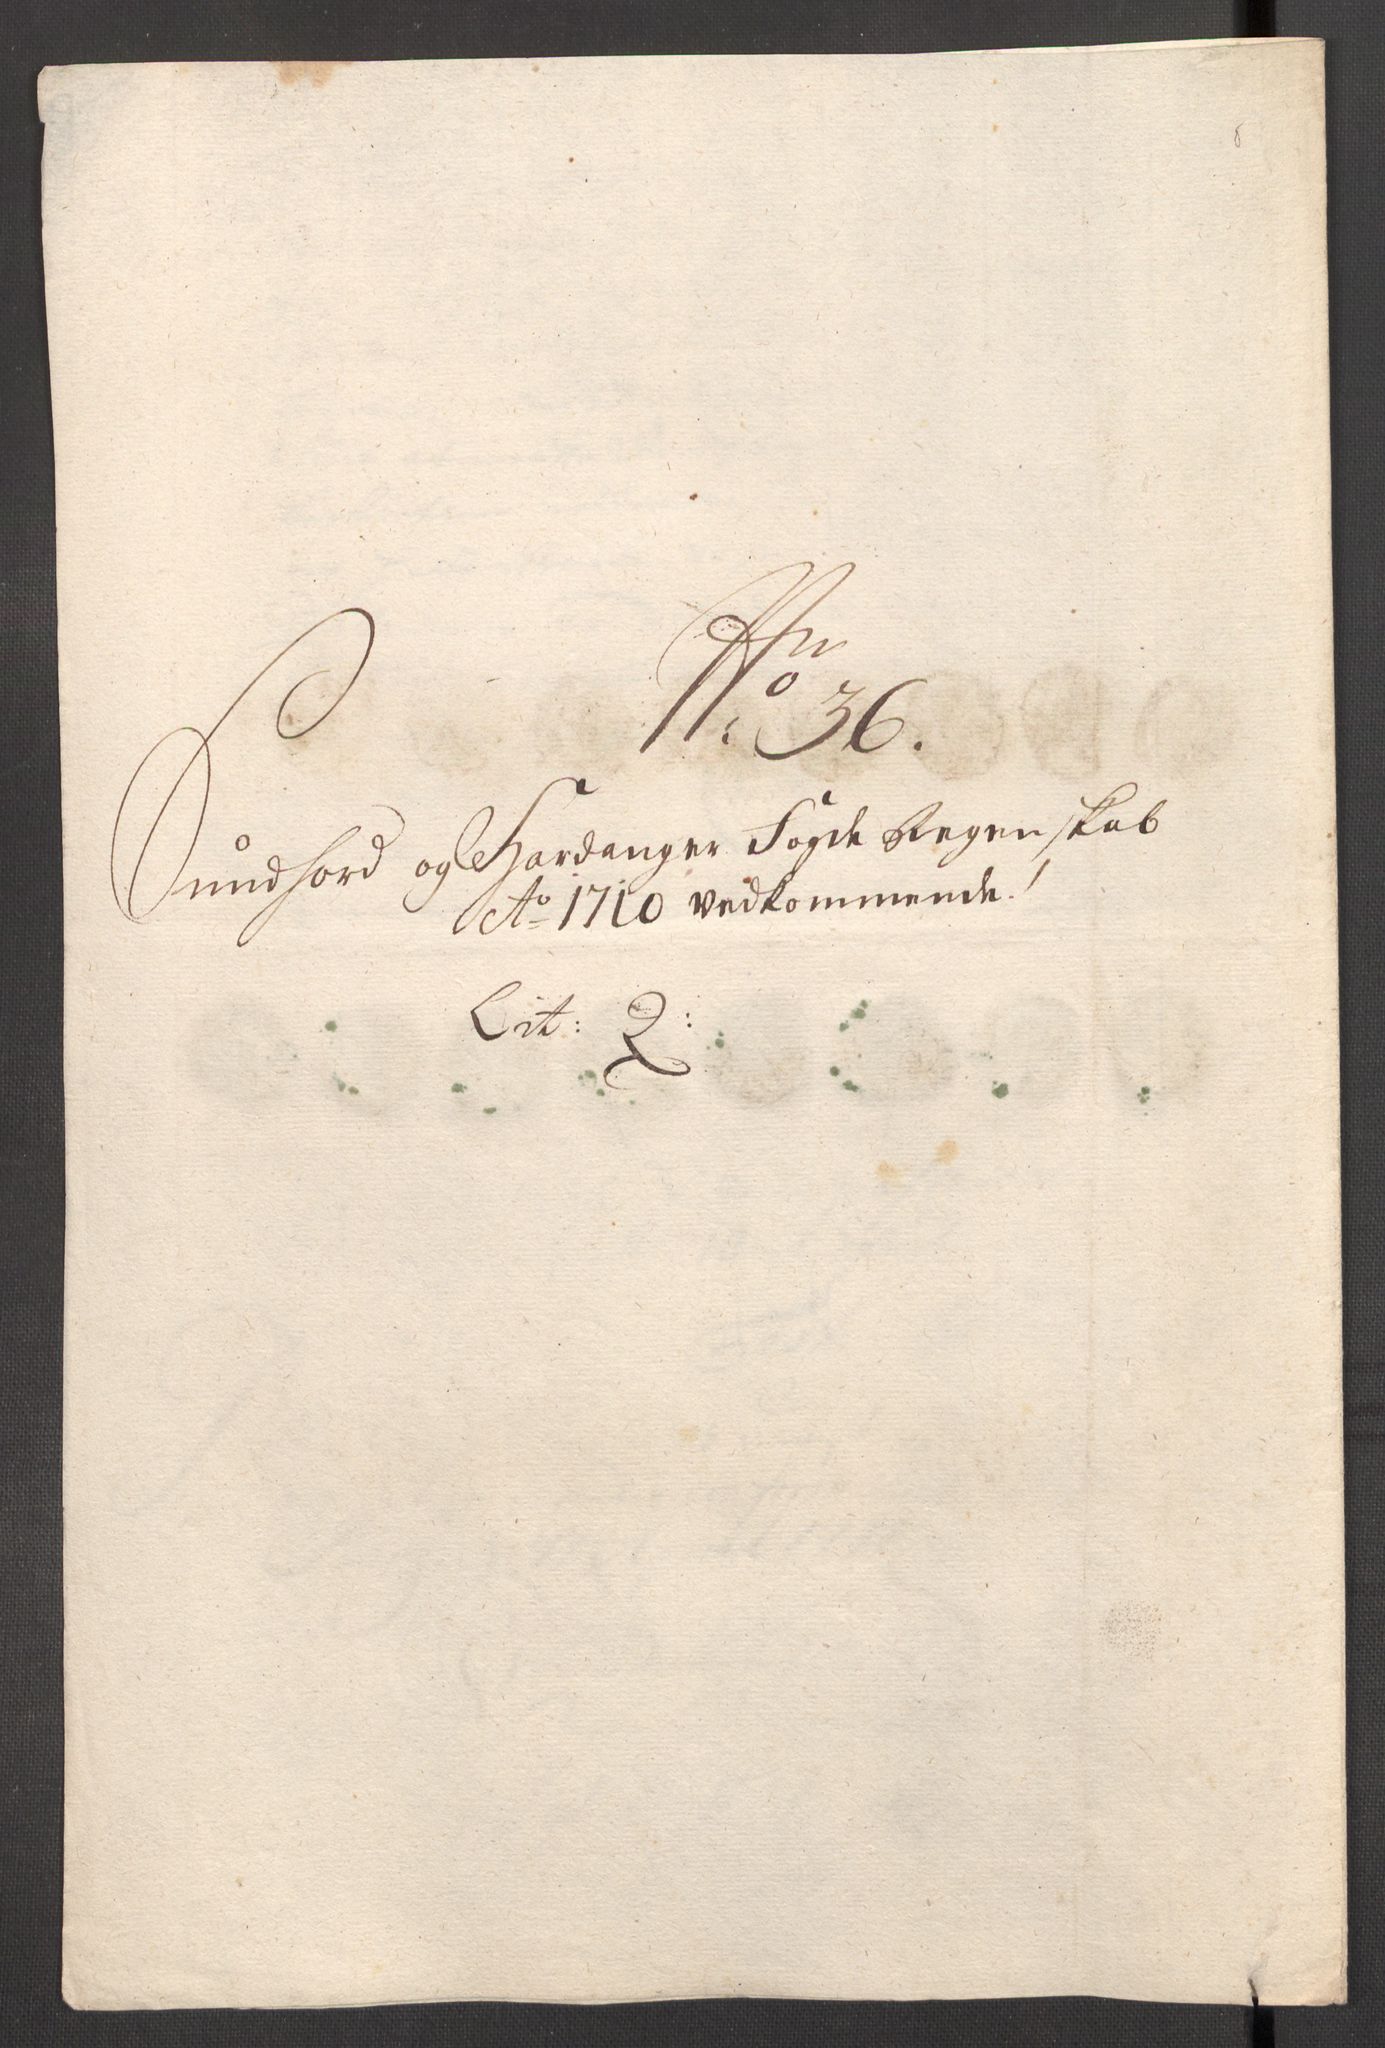 No: 36.
Sundhord og Hardanger Fogde Regenskab
Ao 1710 vedkommende.
Lit: Q: